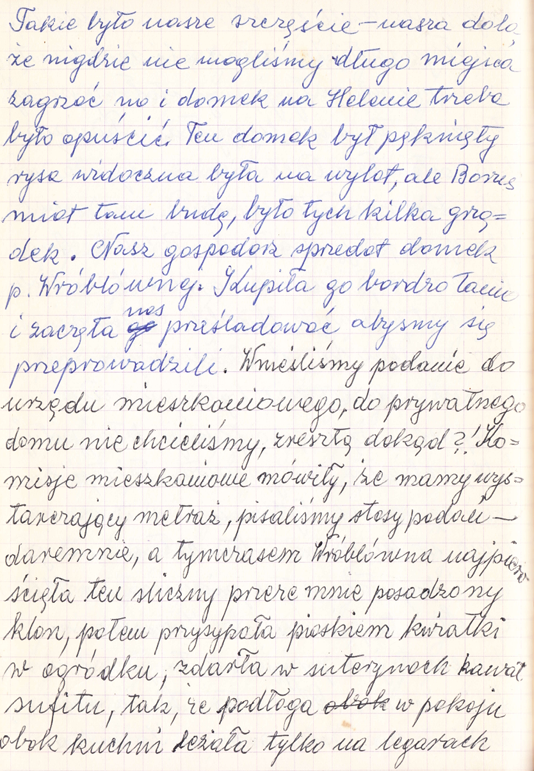 Takie było nasze szczęście – nasza dola
że nigdzie nie mogliśmy długo miejsca
zagrzać no i domek na Helenie trzeba
było opuścić. Ten domek był pęknięty
rysa widoczna była na wylot, ale Borus
miał tam budę, było tych kilka grzą=
dek. Nasz gospodarz sprzedał domek
p. Wróblównej. Kupiła go bardzo tanio
i zaczęła go nas prześladować abyśmy się
przeprowadzili. Wnieśliśmy podanie do
urzędu mieszkaniowego, do prywatnego
domu nie chcieliśmy, zresztą dokąd?! Ko=
misje mieszkaniowe mówiły, że mamy wys=
tarczający metraż, pisaliśmy stosy podań –
daremnie, a tymczasem Wróblówna najpierw
ścięła ten śliczny przeze mnie posadzony
klon, potem przysypała piaskiem kwiatki
w ogródku, zdarła w suterynach kawał
sufitu, tak, że podłoga obok w pokoju
obok kuchni leżała tylko na legarach